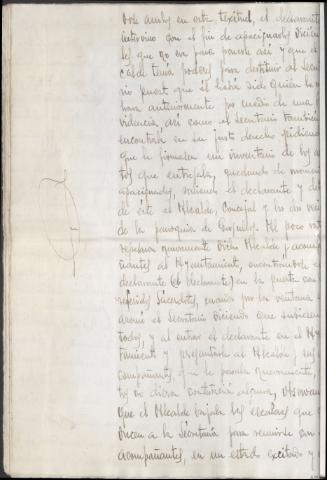 ambos en esta tesitud, el declarante
intervino con el fin de apaciguarlos dicién
les que no era para ponerse así y que el
calde tenía poderes para destituir al Secre
rio puesto que él había sido quien lo
anteriormente por medio de una
videncia, así como el Secretario también
encontraba en su justo derecho pidiendo
que le firmasen un inventario de los
tos que entregaba, quedando de momento
apaciguados, saliendo el declarante y
de éste el Alcalde, Concejal y los dos veci
de la parroquia de Al poco rato
regresaron nuevamente dicho Alcalde y acomp
ñantes al Ayuntamiento, encontrándose el
declarante (el declarante) en la puerta con
referidos Sacerdotes, cuando por la ventana
asomó el Secretario diciendo que subiesen
todos, y al entrar el declarante en el
tamiento y preguntarle al Alcalde y sus
compañantes, qué le pasaba nuevamente,
le dieron contestación alguna, observan
que el Alcalde bajaba las escaleras que
ducen a la Secretaría para reunirse con
acompañantes, en un estado excitado y